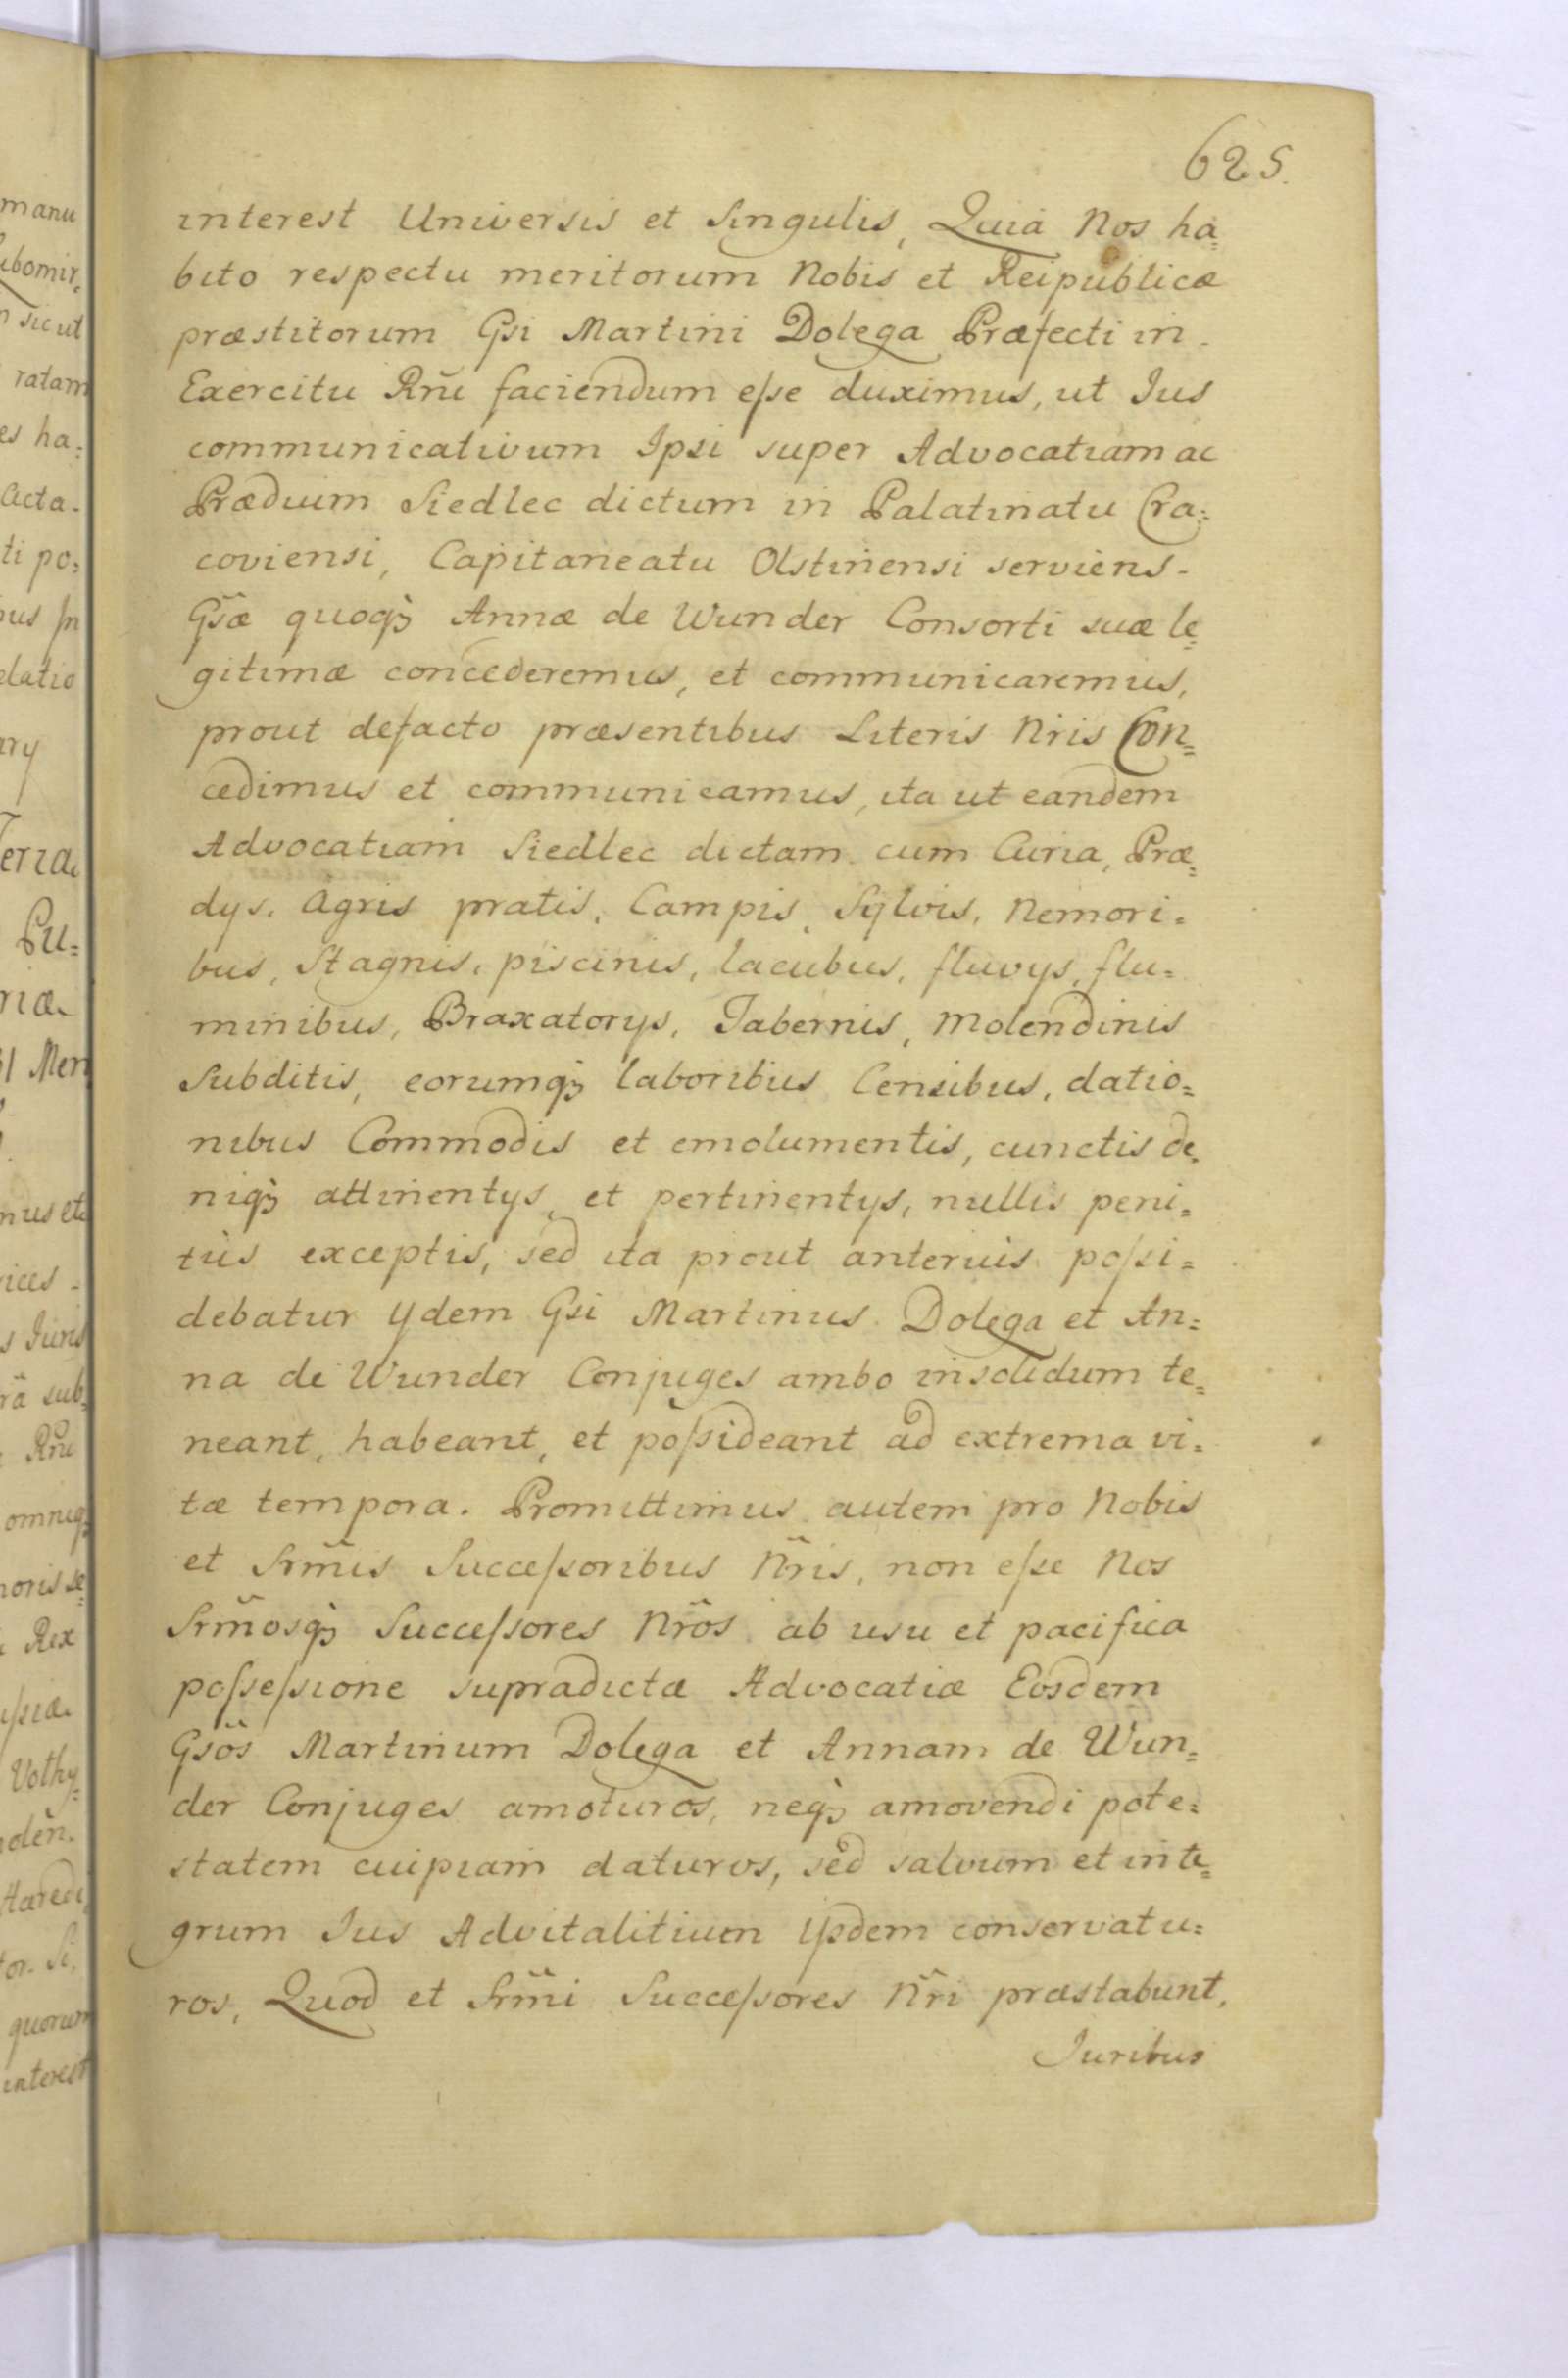 625.
interest Universis et Singulis, Quia Nos ha=
bito respectu meritorum Nobis et Reipublicæ
præstitorum Gsi Martini Dolega Præfecti in
Exercitu Rñi faciendum eſse duximus, ut Jus
communicativum Ipsi super Advocatiam ac
Prædium Siedlec dictum in Palatinatu Cra=
coviensi, Capitaneatu Olstinensi serviens
Gsæ quoqз Annæ de Wunder Consorti suæ le=
gitimæ concederemus, et communicaremus,
prout defacto præsentibus Literis Nris Con=
cedimus et communicamus, ita ut eandem
Advocatiam Siedlec dictam cum Curia, Præ=
dys, Agris pratis, Campis, Sylvis, Nemori=
bus, Stagnis, piscinis, lacubus, fluvys, flu=
minibus, Braxatorys, Tabernis, Molendinis
Subditis, eorumqз laboribus Censibus, datio=
nibus Commodis et emolumentis, cunctis de=
niqз attinentys, et pertinentys, nullis peni=
tùs exceptis, sed ita prout anterius poſsi=
debatur ydem Gsi Martinus Dolega et An=
na de Wunder Conjuges ambo insolidum te=
neant, habeant, et poſsideant ad extrema vi=
tæ tempora. Promittimus autem pro Nobis
et Srm̃is Succeſsoribus Nr̃is, non eſse Nos
Srm̃osqз Succeſsores Nr̃os ab usu et pacifica
poſseſsione supradictæ Advocatiæ Eosdem
Gsõs Martinum Dolega et Annam de Wun=
der Conjuges amoturos, neqз amovendi pote=
statem cuipiam daturos, sed salvum et inte=
grum Jus Advitalitium ysdem conservatu=
ros, Quod et Srm̃i Succeſsores Nr̃i præstabunt,
Juribus
manu
ubomir,
sicut
ratam
es ha=
Acta
ti po=
elatio
Pu=
Men
s Juris
sub=
Rñi
omniqз
Rex
quorum
interest